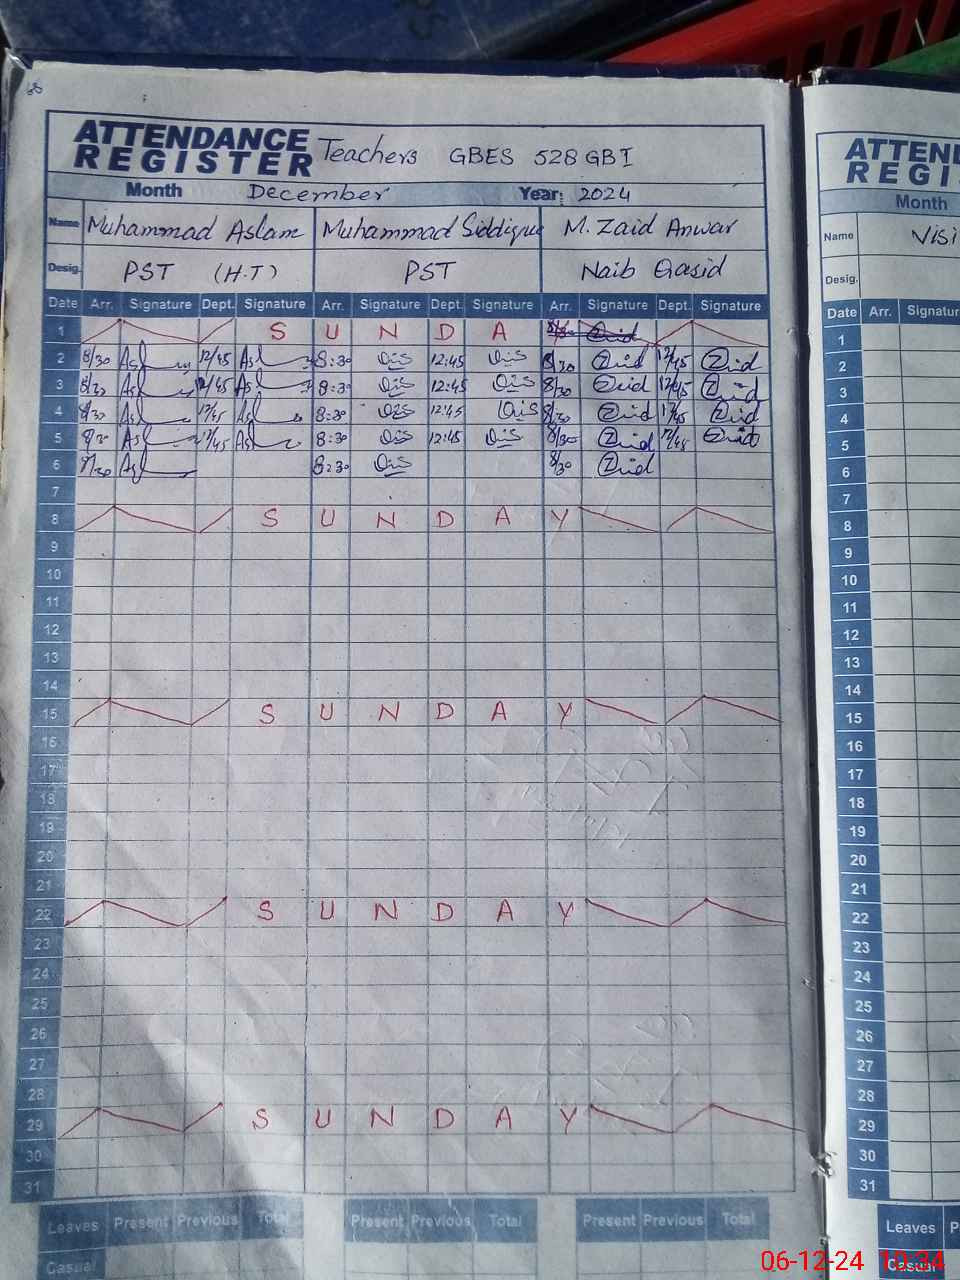 ATTENDANCE REGISTER Teachers GBES 528 GBI
Month December Year: 2024
Name Muhammad Aslam Muhammad Siddique M. Zaid Anwar
Desig. PST (H.T) PST Naib Qasid
Date Arr. Signature Dept. Signature Arr. Signature Dept. Signature Arr. Signature Dept. Signature
1 S U N D A
2 8/30 12/45 8:30 12:45 8/30 Zaid 12/45 Zaid
3 8/30 12/45 8:30 12:45 8/30 Zaid 12/45 Zaid
4 8/30 12/45 8:30 12:45 8/30 Zaid 12/45 Zaid
5 8/30 12/45 8:30 12:45 8/30 Zaid 12/45 Zaid
6 8/30 8:30 8/30 Zaid
7
8 S U N D A Y
9
10
11
12
13
14
15 S U N D A Y
16
17
18
19
20
21
22 S U N D A Y
23
24
25
26
27
28
29 S U N D A Y
30
31
Leaves Present Previous Total Present Previous Total Present Previous Total
Casual
ATTEN
REGI
Month
Name Visi
Desig.
Date Arr. Signatur
1
2
3
4
5
6
7
8
9
10
11
12
13
14
15
16
17
18
19
20
21
22
23
24
25
26
27
28
29
30
31
Leaves P
Casual
06-12-24 10:34